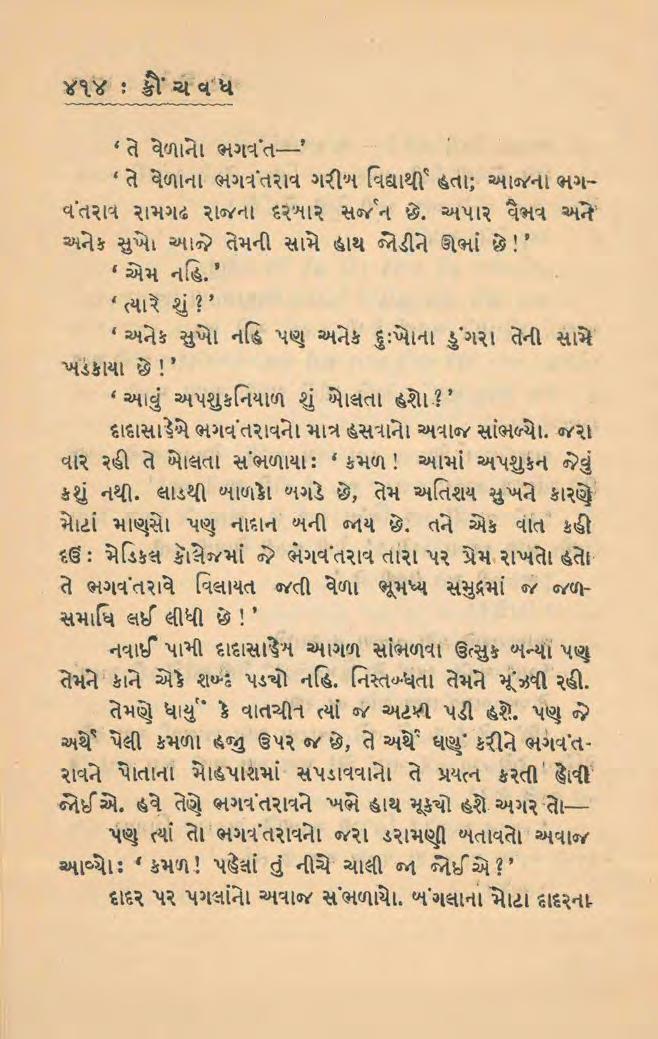 ૪૧૪ : ક્રૌંચવધ
‘ તે વેળાનો ભગવંત—’
‘ તે વેળાના ભગવંતરાવ ગરીબ વિદ્યાર્થી હતા; આજના ભગ-
વંતરાવ રામગઢ રાજના દરબાર સર્જન છે. અપાર વૈભવ અને
અનેક સુખો આજે તેમની સામે હાથ જોડીને ઊભાં છે ! ’
‘ એમ નહિ. ’
‘ ત્યારે શું ? ’
‘ અનેક સુખો નહિ પણ અનેક દુઃખોના ડુંગરા તેની સામે
ખડકાયા છે ! ’
‘ આવું અપશુકનિયાળ શું બોલતા હશો ? ’
દાદાસાહેબે ભગવંતરાવનો માત્ર હસવાનો અવાજ સાંભળ્યો. જરા
વાર રહી તે બોલતા સંભળાયા : ‘ કમળ ! આમાં અપશુકન જેવું
કશું નથી. લાડથી બાળકો બગડે છે, તેમ અતિશય સુખને કારણે
મોટાં માણસો પણ નાદાન બની જાય છે. તને એક વાત કહી
દઉં : મેડિકલ કૉલેજમાં જે ભગવંતરાવ તારા પર પ્રેમ રાખતો હતો
તે ભગવંતરાવે વિલાયત જતી વેળા ભૂમધ્ય સમુદ્રમાં જ જળ-
સમાધિ લઈ લીધી છે ! ’
નવાઈ પામી દાદાસાહેબ આગળ સાંભળવા ઉત્સુક બન્યા પણ
તેમને કાને એકે શબ્દ પડ્યો નહિ. નિસ્તબ્ધતા તેમને મૂંઝવી રહી.
તેમણે ધાર્યું કે વાતચીત ત્યાં જ અટકી પડી હશે. પણ જે
અર્થે પેલી કમળા હજી ઉપર જ છે, તે અર્થે ઘણું કરીને ભગવંત-
રાવને પોતાના મોહપાશમાં સપડાવવાનો તે પ્રયત્ન કરતી હોવી
જોઈએ. હવે તેણે ભગવંતરાવને ખભે હાથ મૂક્યો હશે અગર તો—
પણ ત્યાં તો ભગવંતરાવનો જરા ડરામણી બતાવતો અવાજ
આવ્યો : ‘ કમળ ! પહેલાં તું નીચે ચાલી જા જોઈએ ? ’
દાદર પર પગલાંનો અવાજ સંભળાયો. બંગલાના મોટા દાદરના